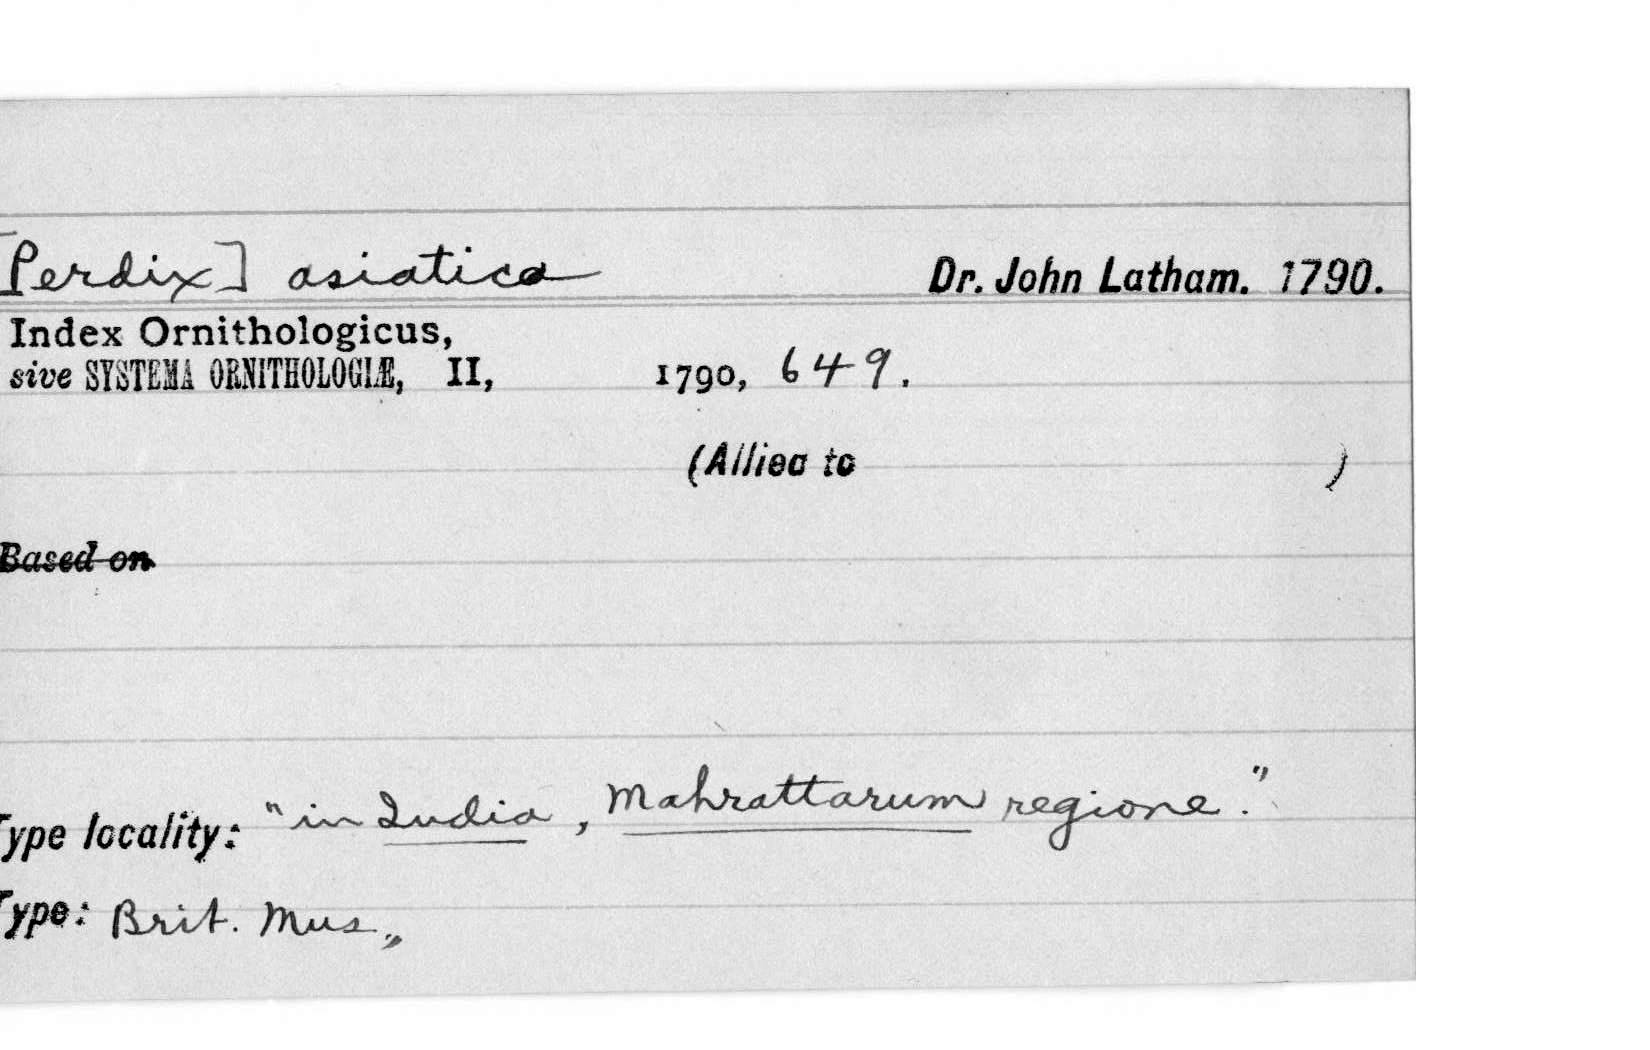 [Perdix] asiatica Dr. John Latham. 1790.
Index Ornithologicus,
sive SYSTEMA ORNITHOLOGIÆ, II, 1790, 649.
(Allied to )
Based on
Type locality: "in India, Mahrattarum regione."
Type: Brit. Mus.,